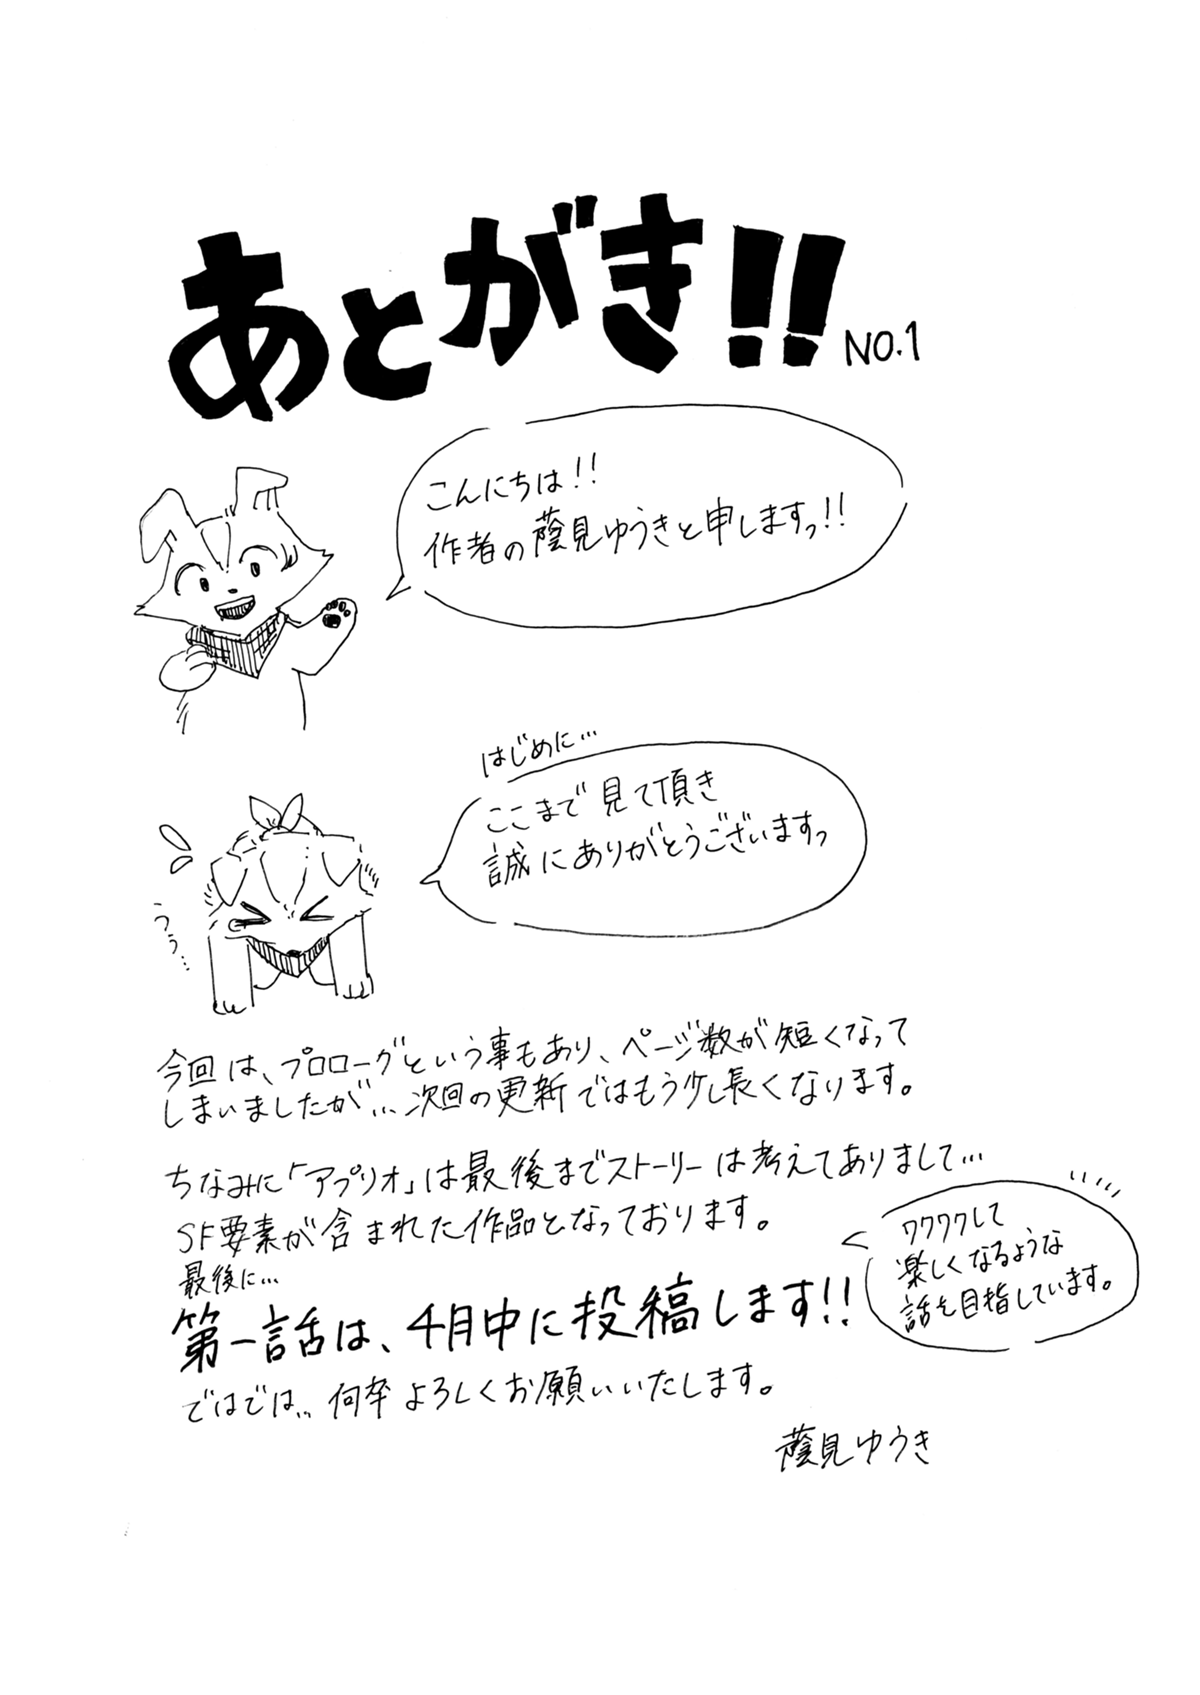 あとがき!!
NO.1
こんにちは!!
作者の蔭見ゆうきと申しますっ!!
はじめに…
ここまで見て頂き
誠にありがとうございますっ
うぅ…
今回は、プロローグという事もあり、ページ数が短くなって
しまいましたが…次回の更新ではもう少し長くなります。
ちなみに「アプリオ」は最後までストーリーは考えてありまして…
SF要素が含まれた作品となっております。
ワクワクして
楽しくなるような
話を目指しています。
最後に…
第一話は、4月中に投稿します!!
ではでは…何卒よろしくお願いいたします。
蔭見ゆうき